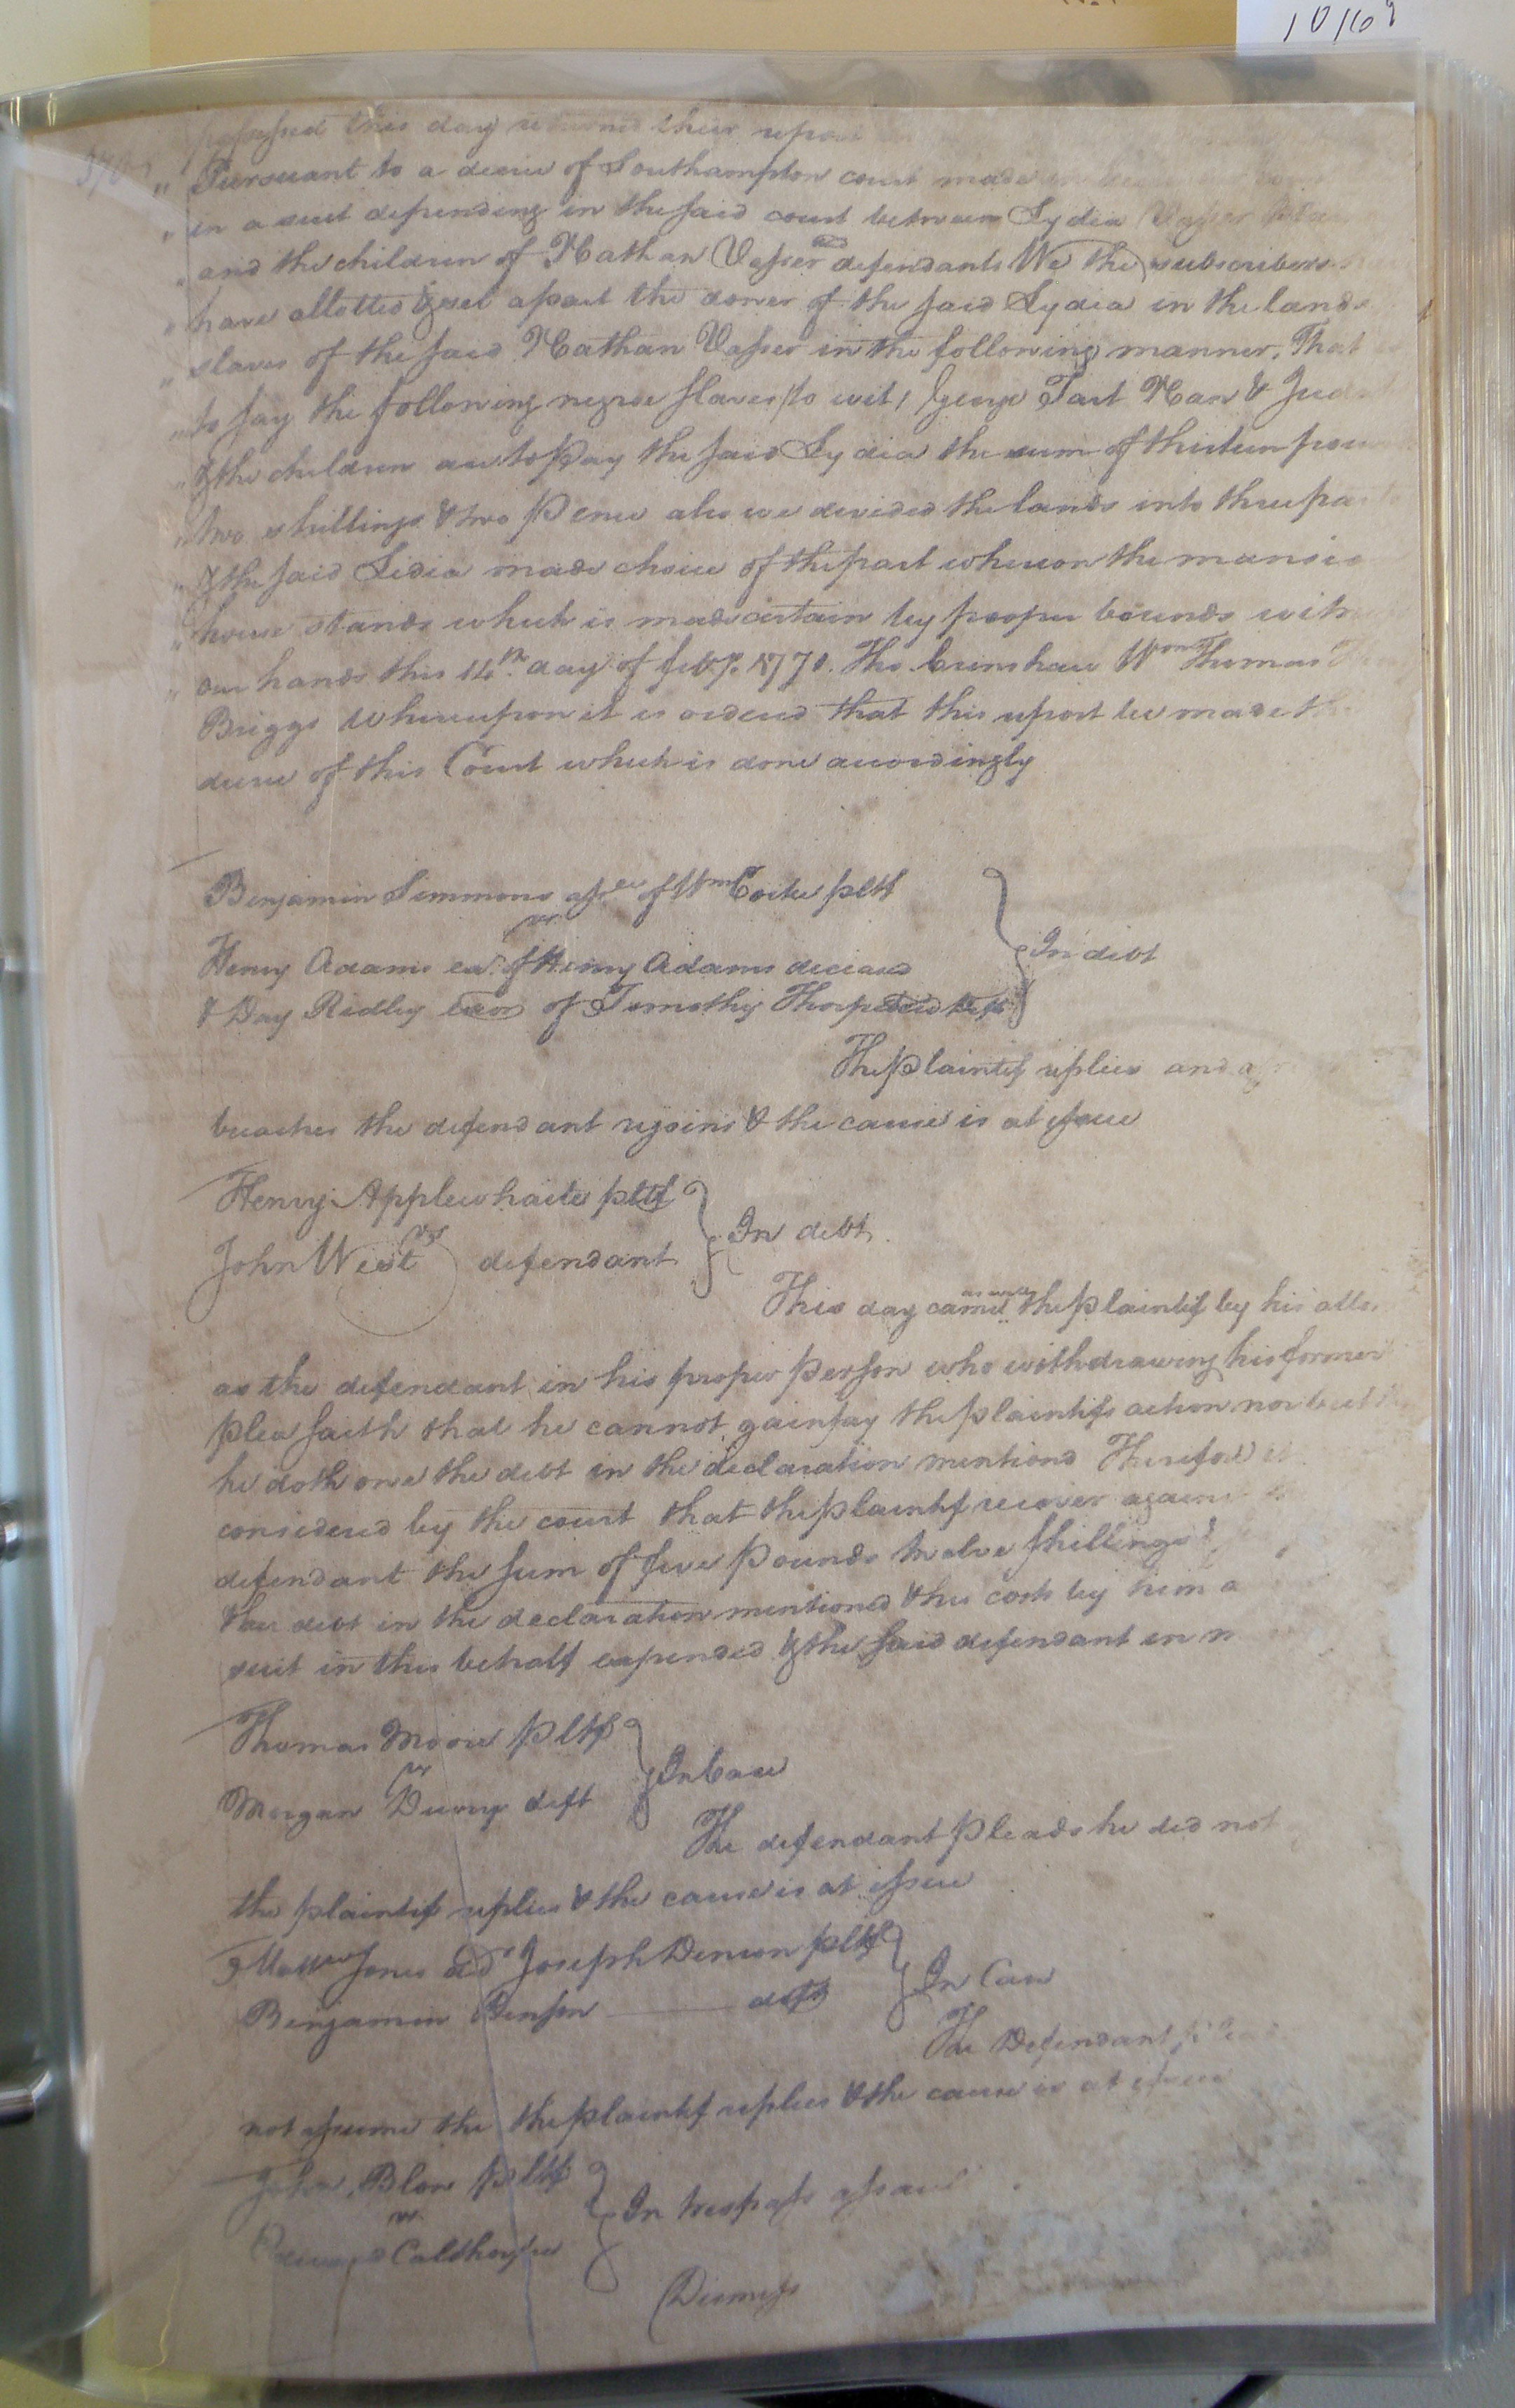 10169
this day returned their report
" Pursuant to a decree of Southampton court made in
" in a suit depending in the said court between Lydia Vasser
" and the children of Nathan Vasser decd defendants We the subscribers
" have allotted & set apart the dower of the said Lydia in the lands
" slaves of the said Nathan Vasser in the following manner, That
" to say the following negroe slaves (to wit) George Tart Nan &
" & the children are to pay the said Lydia the sum of thirteen
" two shillings & two pence also we devided the lands into three
" & the said Lidia made choice of the part whereon the
" house stands which is made certain by proper bounds
" our hands this 14th day of feby. 1771. Tho Crenshaw Wm Thomas
Briggs Whereupon it is ordered that this report be made the
decree of this Court which is done accordingly
Benjamin Simmons assee of Wm Cocke pltf
vs
Henry Adams exr. of Henry Adams deceased
& Day Ridley Exor of Timothy Thorpe decd defts
In debt
The plaintif replies and
breaches the defendant rejoins & the cause is at issue
Henry Applewhaite pltf
vs
John West defendant
In debt
This day came as well the plaintif by his
as the defendant in his proper person who withdrawing his former
plea saith that he cannot gainsay the plaintifs action nor but
he doth owe the debt in the declaration mentiond Therefore it
considered by the court that the plaintif recover against
defendant the sum of five pounds twelve shillings
the debt in the declaration mentioned & his costs by him
suit in this behalf expended & the said defendant in m
Thomas Moore pltf
vs
Morgan deft
In Case
The defendant pleads he did not
the plaintif replies & the cause is at issue
Matthew Jones Joseph Denson pltf
Benjamin Denson deft
In Case
The Defendant
not assume the the plaintif replies & the cause is at issue
John Blow pltf
vs
Calthorpe
In trespass assault
Dismiss